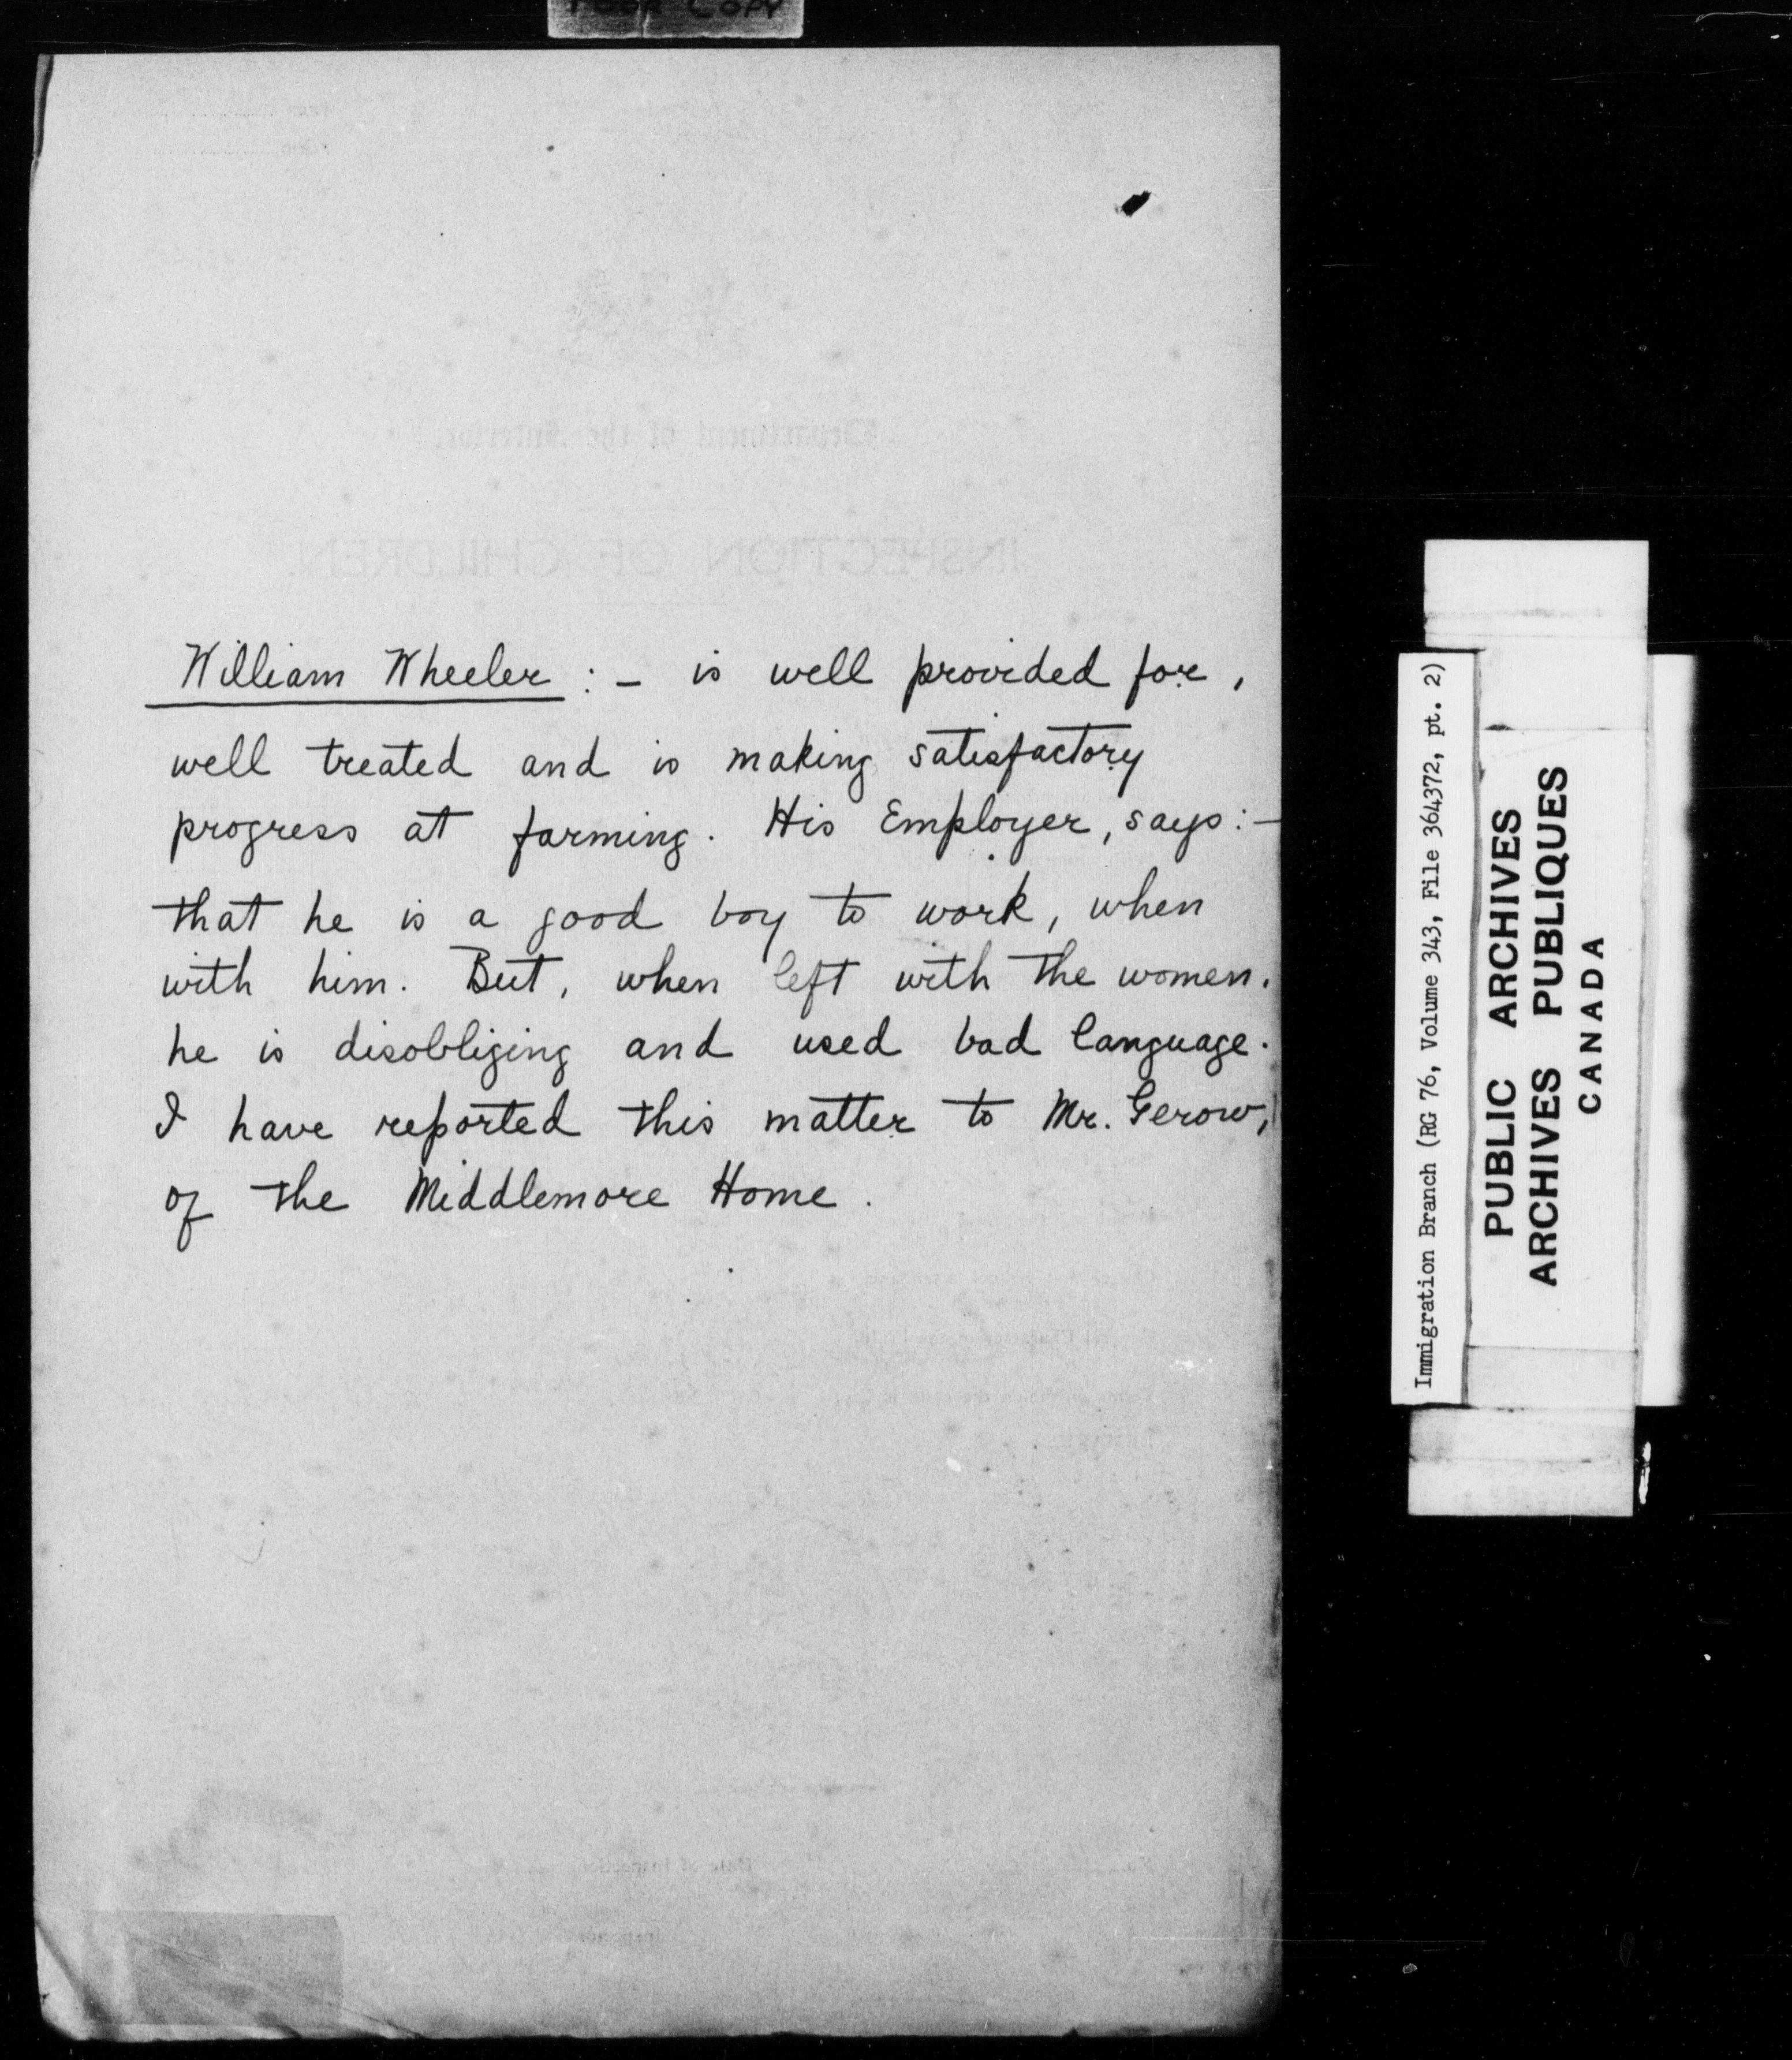 POOR COPY
Department of the Interior.
INSPECTION OF CHILDREN.
William Wheeler :- is well provided for,
well treated and is making satisfactory
progress at farming. His Employer, says:-
that he is a good boy to work, when
with him. But, when left with the women.
he is disobliging and used bad language.
I have reported this matter to Mr. Gerow,
of the Middlemore Home.
Date of Inspection
Immigration Branch (RG 76, Volume 343, File 364372, pt. 2)
PUBLIC ARCHIVES
ARCHIVES PUBLIQUES
CANADA